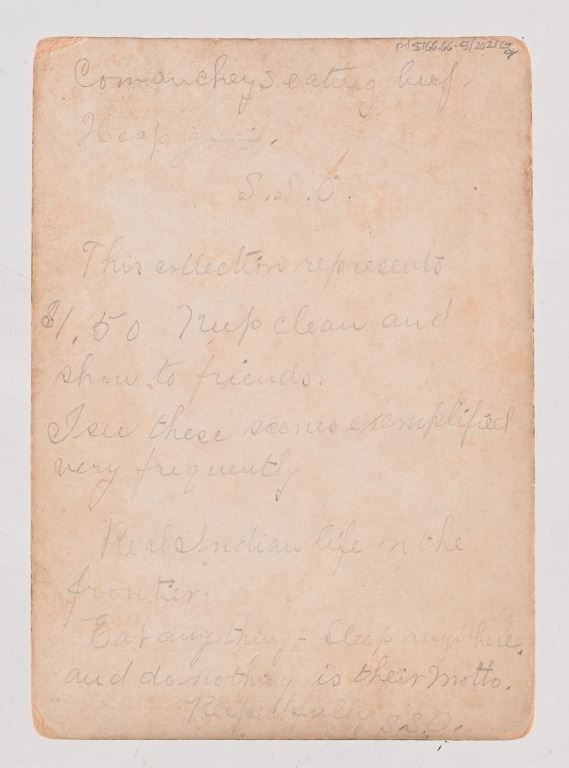 Comancheys eating beef.
Heap good.
S.S.O
This collection represents
$1.50 Keep clean and
show to friends.
I see these scenes exemplified
very frequently
Real Indian life on the
frontier.
Eat anything - Sleep anywhere,
and do nothing is their motto.
Respectfully S.S.O.